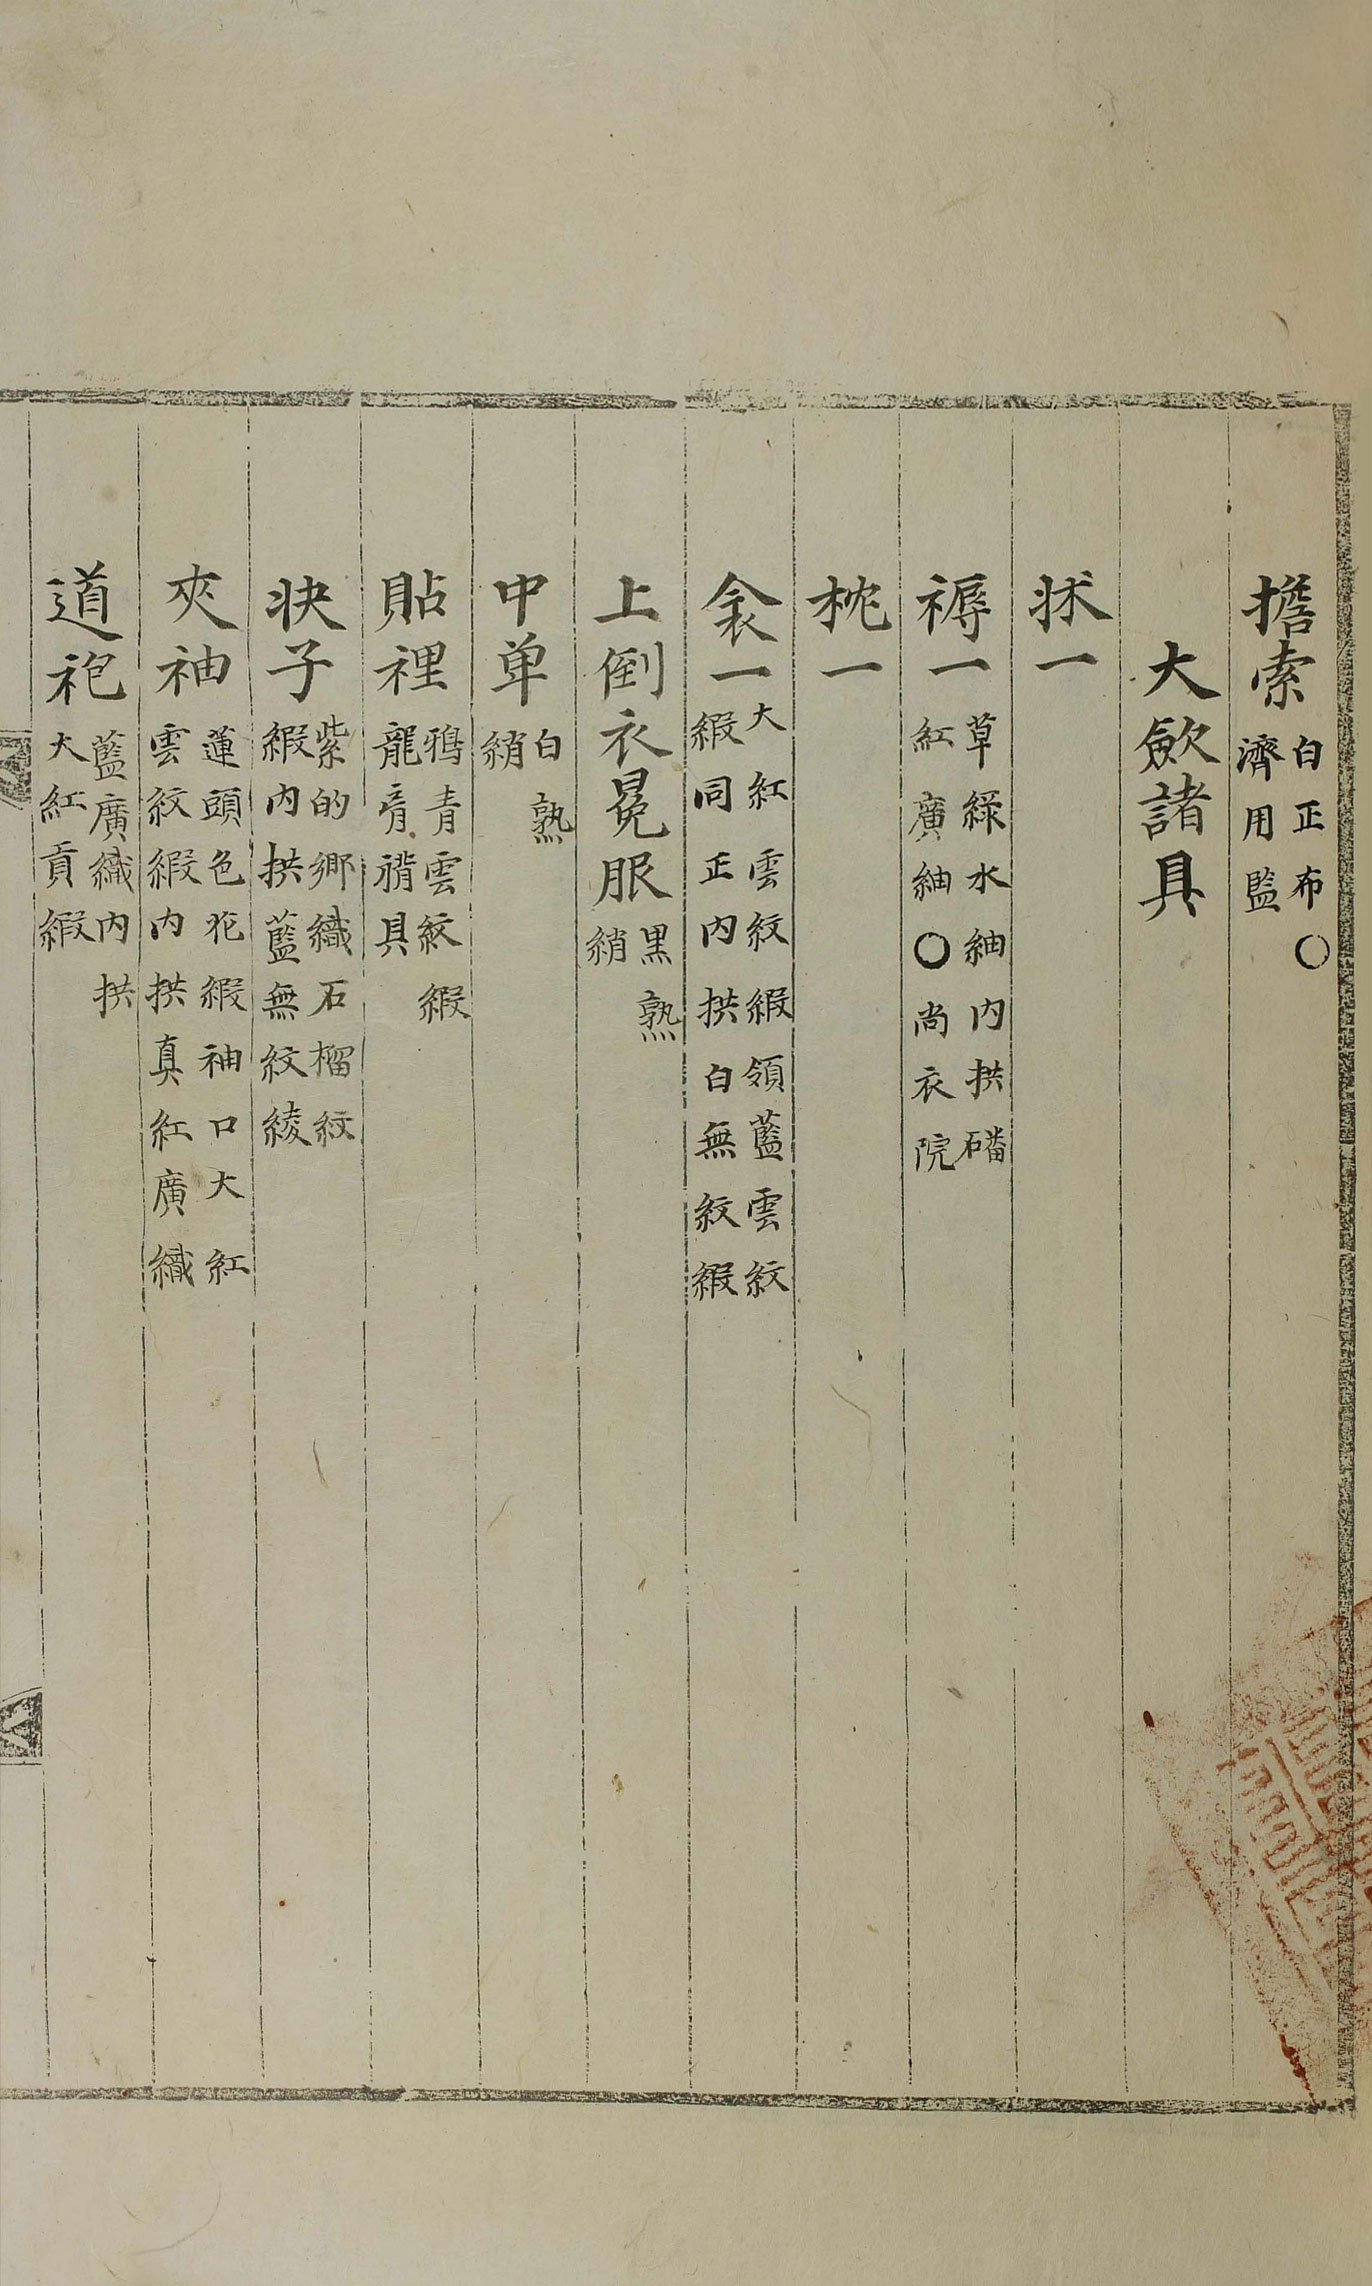 擔索白正布○濟用監
大斂諸具
牀一
褥一草綠水紬內拱磻紅廣紬○尚衣院
枕一
衾一大紅雲紋緞領藍雲紋緞同正內拱白無紋緞
上倒衣冕服黑熟綃
中单白熟綃
貼裡鴉青雲紋緞龍脊褙具
快子紫的鄉織石榴紋緞內拱藍無紋綾
夾袖蓮頭色花緞袖口大紅雲紋緞內拱真紅廣織
道袍藍廣織內拱大紅貢緞